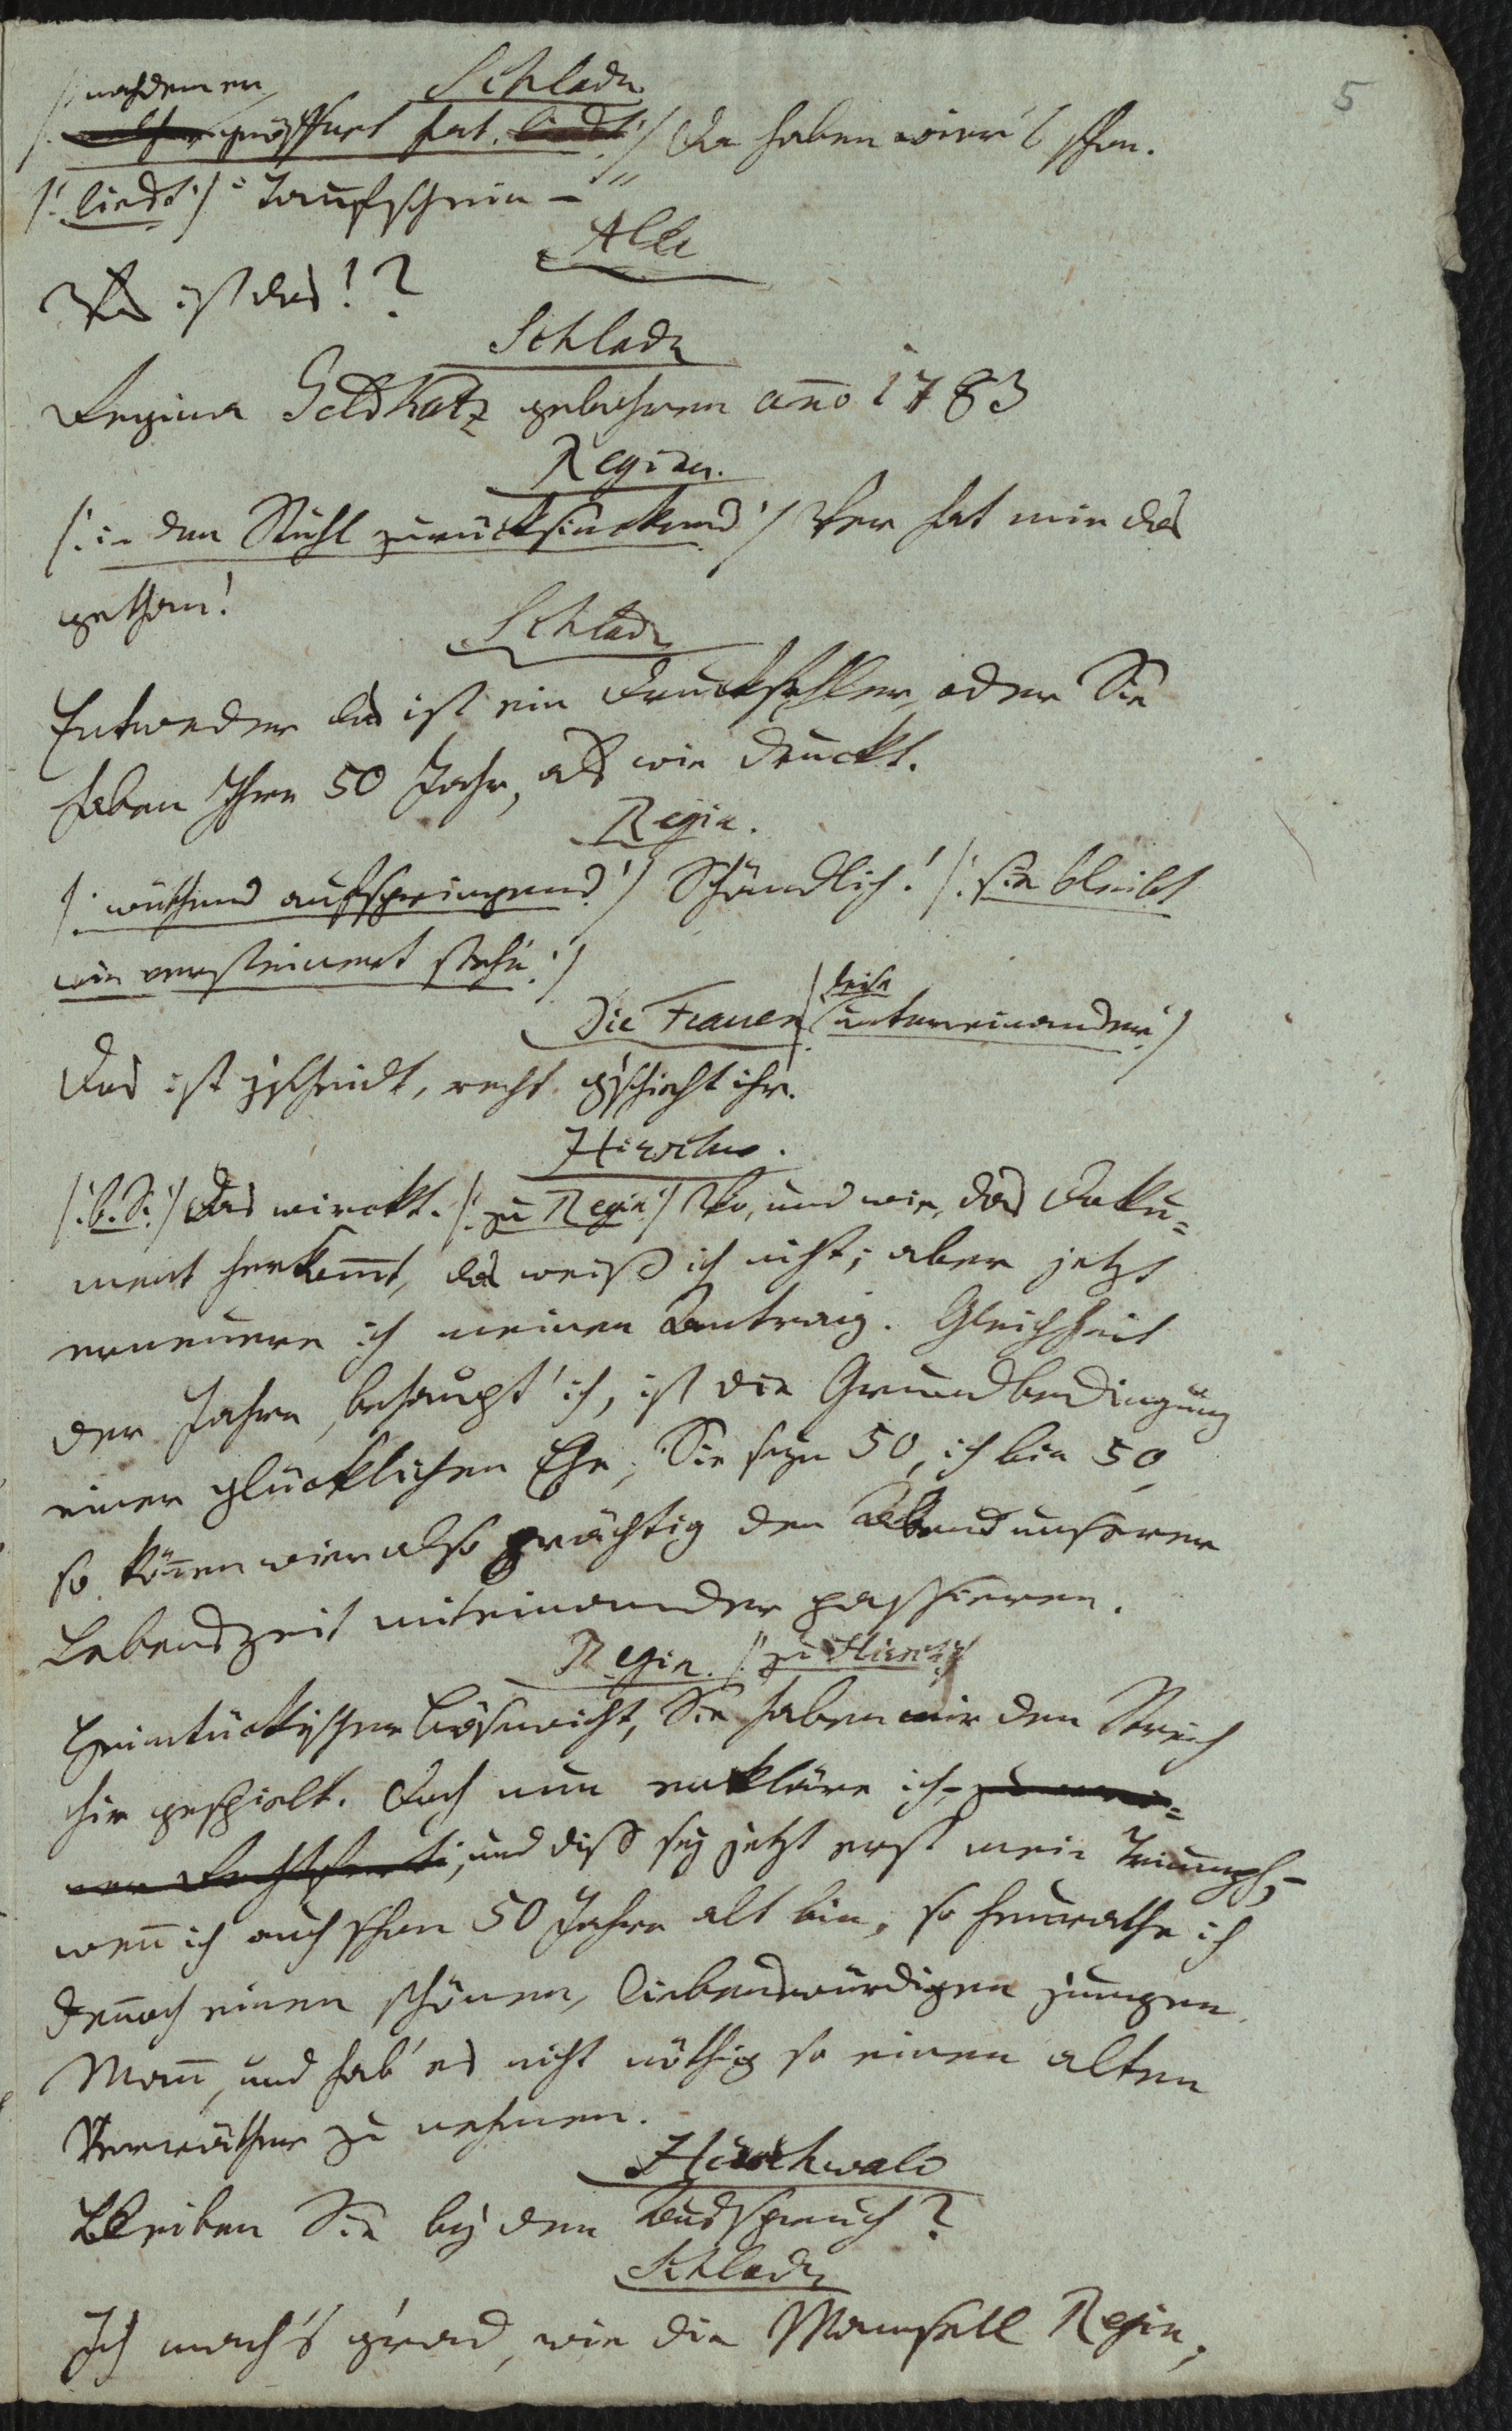 5
Schladr
nachdem er
/: geöffnet hat. :/ Da haben wier's schon.
/: liest :/ "Taufschein –"
Alle
Was ist das!?
Schladr
Regina Geldkatz gebohren año 1783
Regina.
/: in den Stuhl zurücksinckend :/ Wer hat mir das
gethan!
Schladr
Entweder das ist ein Druckfehler, oder Sie
haben Ihre 50 Jahr, als wie druckt.
Regin.
/: wüthend aufspringend :/ Schändlich! /: sie bleibt
wie versteinert stehn :/
Die Frauen /: leise untereinander :/
Das ist g'scheidt, recht g'schieht ihr.
Hirschw.
/: b. S. :/ Das wirckt. /: zu Regin :/ Wo, und wie, das Doku=
ment herkom̄t, das weiß ich nicht; aber jetzt
erneuere ich meinen Antrag. Gleichheit
der Jahre, behaupt' ich, ist die Grundbedingung
einer glücklichen Ehe; Sie seyn 50, ich bin 50,
so kön̄en wier also prächtig den Abend unserer
Lebenszeit miteinander passieren.
Regin. /: zu Hirsch :/
Heimtückischer Bösewicht, Sie haben mir den Streich
hir gespielt. Doch nun erkläre ich, zu mei=
ner, und diß sey jetzt erst mein Triumph, –
wen̄ ich auch schon 50 Jahre alt bin, so heurathe ich
den̄och einen schönen, liebenswürdigen jungen
Man̄, und hab' es nicht nöthig so einen alten
Verräther zu nehmen.
Hirschwald
Bleiben Sie bey dem Ausspruch?
Schladr
Ich mach's g'rad, wie die Mamsell Regin,